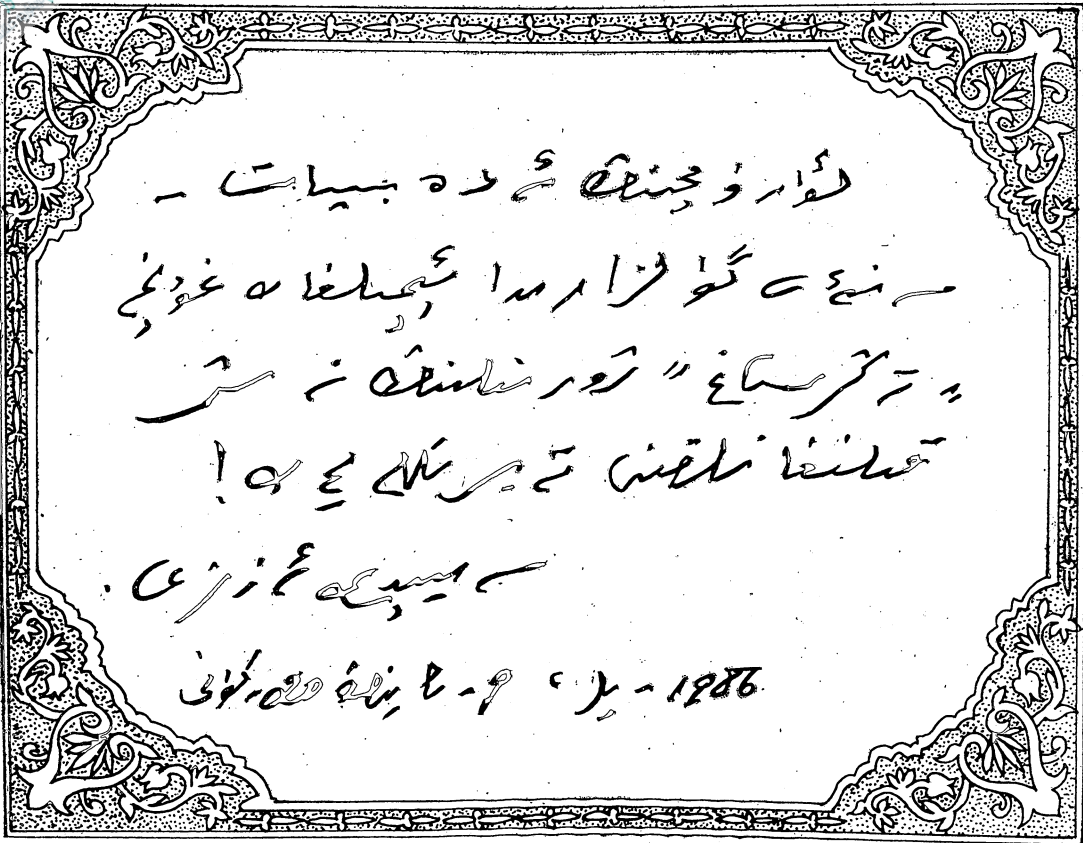 ئۈرۈمچىنىڭ ئەدەبىيات -
سەنئەت گۈلزارىدا ئېچىلغان
«تەڭرىتاغ» ژورنىلىنىڭ نەشر
قىلىنغانلىقىنى تەبرىكلەيمەن!
سەيپىدىن ئەزىزى.
1986 - يىل، 9 - ئاينىڭ كۈنى